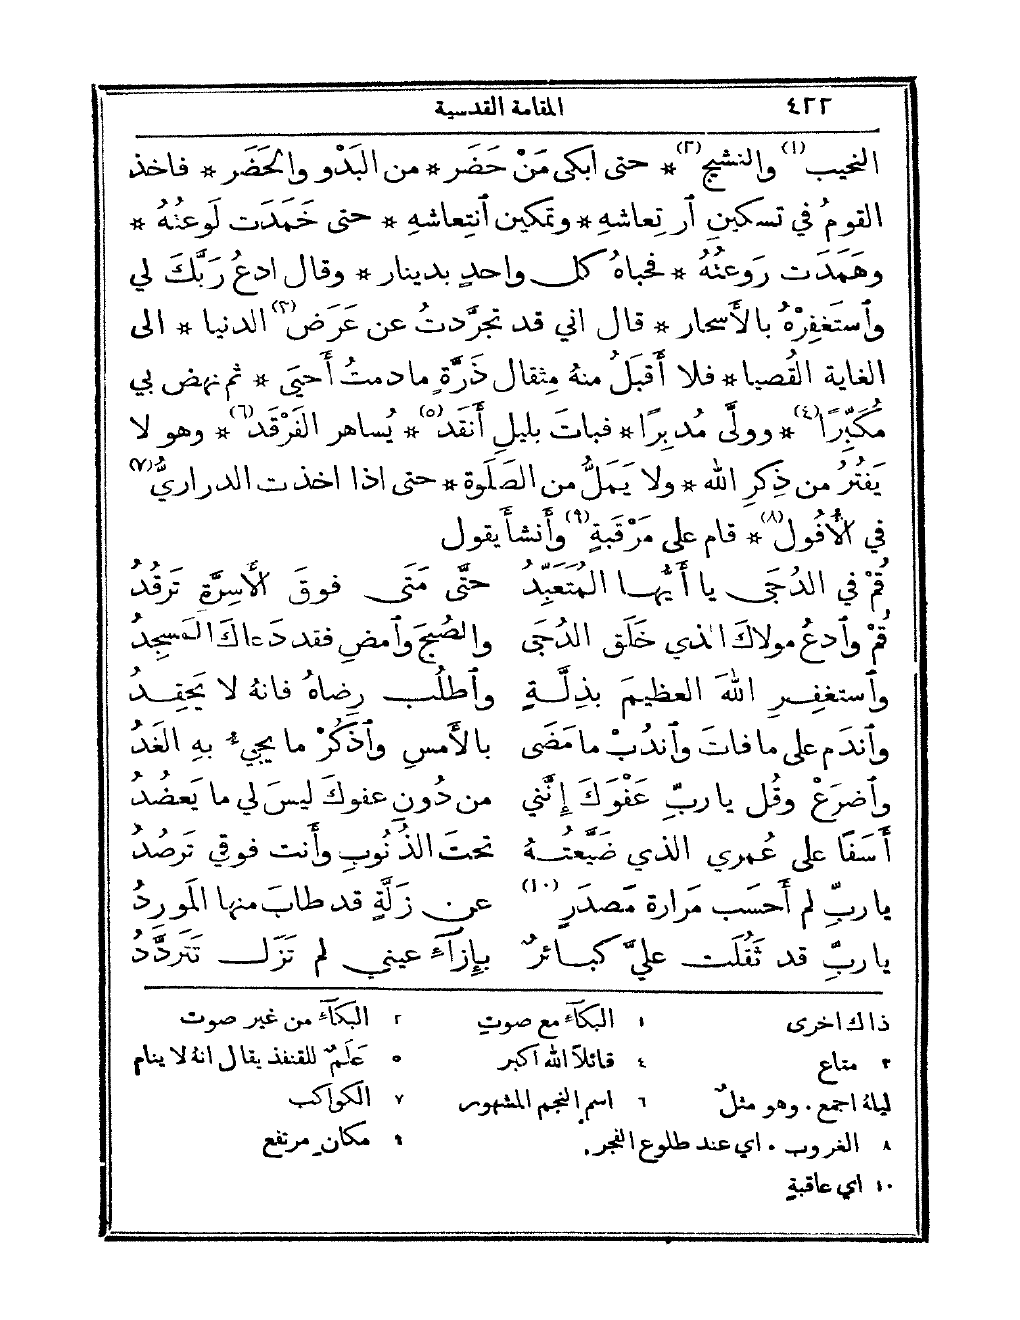 ٤٢٢ المقامة القدسية
النحيب(١) والنشيج(٢)* حتى ابكى مَنْ حَضَر * من البَدْو والحَضَر * فاخذ
القومُ في تسكينِ أرتِعاشهِ * وتمكين أنتِعاشهِ * حتى خَمَدَت لَوعتُهُ *
وهَمَدَت رَوعتُهُ * فحباهُ كل واحدٍ بدينار * وقال ادعُ رَبَّكَ لي
وأستَغفِرْهُ بالأَسحار * قال اني قد تجرَّدتُ عن عَرَض(٣) الدنيا * الى
الغاية القُصيا * فلا أَقبَلُ منهُ مِثقال ذَرَّةٍ ما دمتُ أَحيَى * ثم نهض بي
مُكَبِّرًا(٤)* وولَّى مُدبِرًا * فباتَ بليلِ أَنقَد(٥)* يُساهر الفَرْقَد(٦)* وهو لا
يَفتُرُ من ذِكرِ الله * ولا يَمَلُّ من الصَلَوة * حتى اذا اخذت الدراريُّ(٧)
في الأُفُول(٨)* قام على مَرْقَبةٍ(٩) وأَنشأَ يقول
قُمْ في الدُجَى يا أَيُّها المُتَعَبِّدُ حتَّى مَتَى فوقَ الأَسِرَّةِ تَرقُدُ
قُمْ وأدعُ مولاكَ الذي خَلَق الدُجَى والصُبحَ وأمضِ فقد دَعاكَ المَسجِدُ
وأستغفِرِ اللهَ العظيمَ بذِلَّةٍ وأطلُب رِضاهُ فانهُ لا يَحقِدُ
وأندَم على ما فاتَ وأندُبْ ما مَضَى بالأَمسِ وأذكُرْ ما يجيءُ بهِ الغَدُ
وأضرَعْ وقُل يا ربِّ عَفْوَكَ إِنَّني من دُونِ عفوكَ ليسَ لي ما يَعضُدُ
أَسَفًا على عُمري الذي ضَيَّعتُهُ تحتَ الذُنُوبِ وأَنت فوقي تَرصُدُ
يا ربِّ لم أَحسَب مَرارة مَصدَرٍ(١٠) عن زَلَّةٍ قد طابَ منها المَورِدُ
يا ربِّ قد ثَقُلَت عليَّ كبائرٌ بإِزاءِ عيني لم تَزَل تَتَردَّدُ
ذاك اخرى ١ البكاءَ مع صوتٍ ٢ البكاءَ من غير صوت
٣ متاع ٤ قائلاً الله اكبر ٥ عَلَمٌ للقنفذ يقال انهُ لا ينام
ليلهُ اجمع . وهو مثلٌ ٦ اسم النجم المشهور ٧ الكواكب
٨ الغروب . اي عند طلوع الفجر . ٩ مكان مرتفع
١٠ اي عاقبةٍ